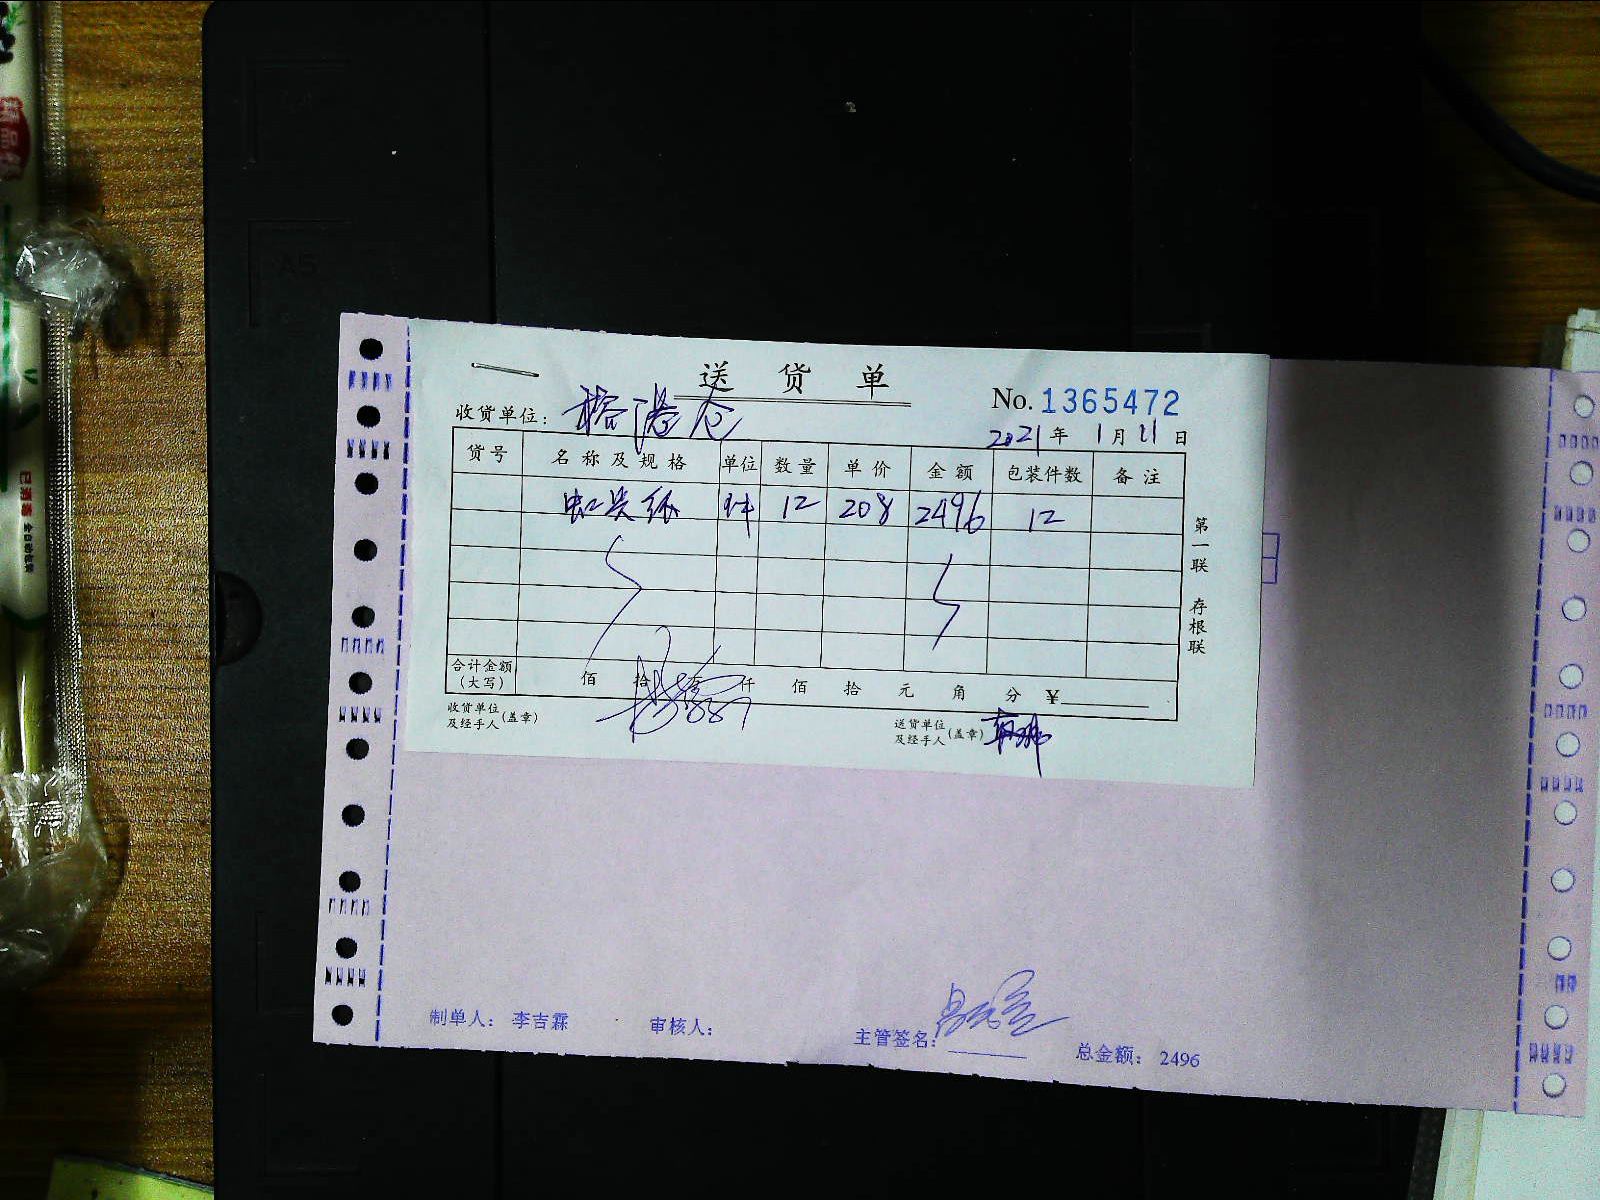 送货单
No. 1365472
收货单位:
2021年 1月 21日
货号 名称及规格 单位 数量 单价 金额 包装件数 备注
纸 件 12 208 2496 12
第一联 存根联
合计金额(大写) 佰 拾 仟 佰 拾 元 角 分 ¥
收货单位及经手人(盖章)
送货单位及经手人(盖章)
制单人: 李吉霖 审核人: 主管签名: 总金额: 2496
A5
已消毒 全自动包装